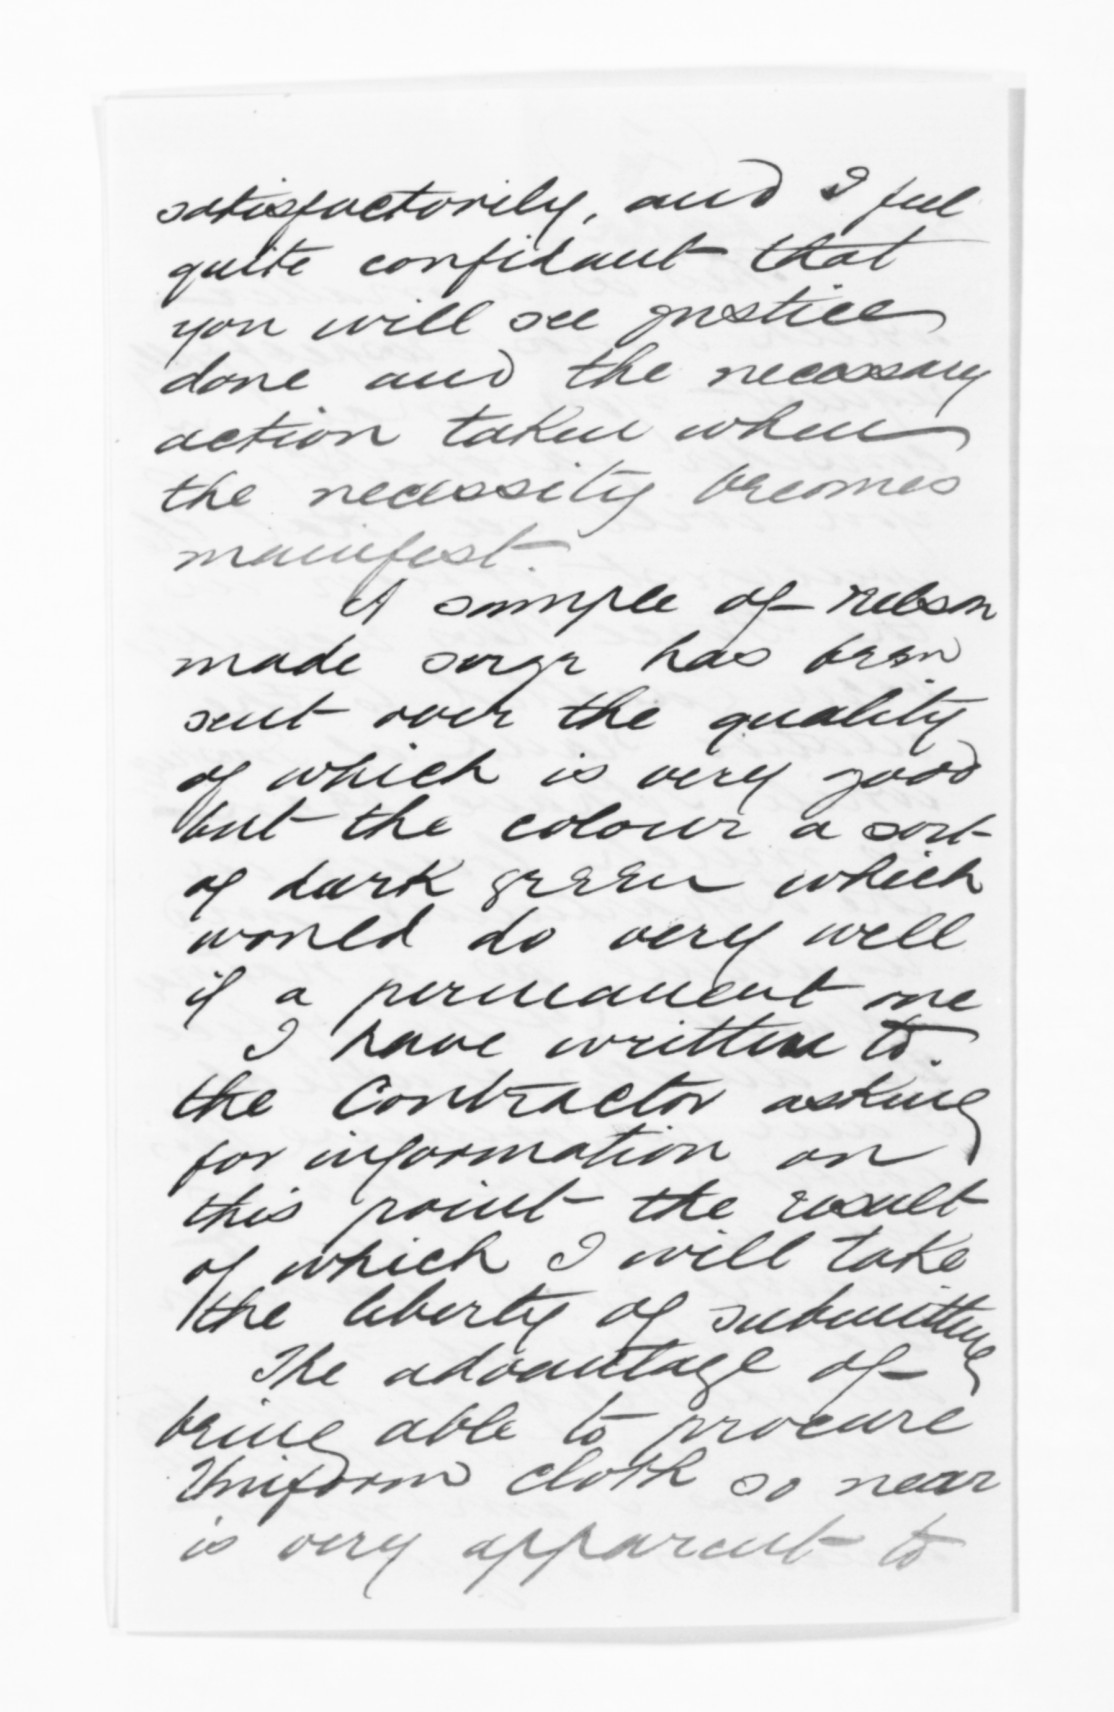 satisfactorily, and I feel
quite confidant that
you will see justice
done and the necessary
action taken when
the necessity becomes
manifest.
A sample of Nelson
made serge has been
sent over the quality
of which is very good
but the colour a sort
of dark green which
would do very well
if a permanent one
I have written to
the Contractor asking
for information on
this point the result
of which I will take
the liberty of submitting
The advantage of
being able to procure
Uniform cloth so near
is very apparent to